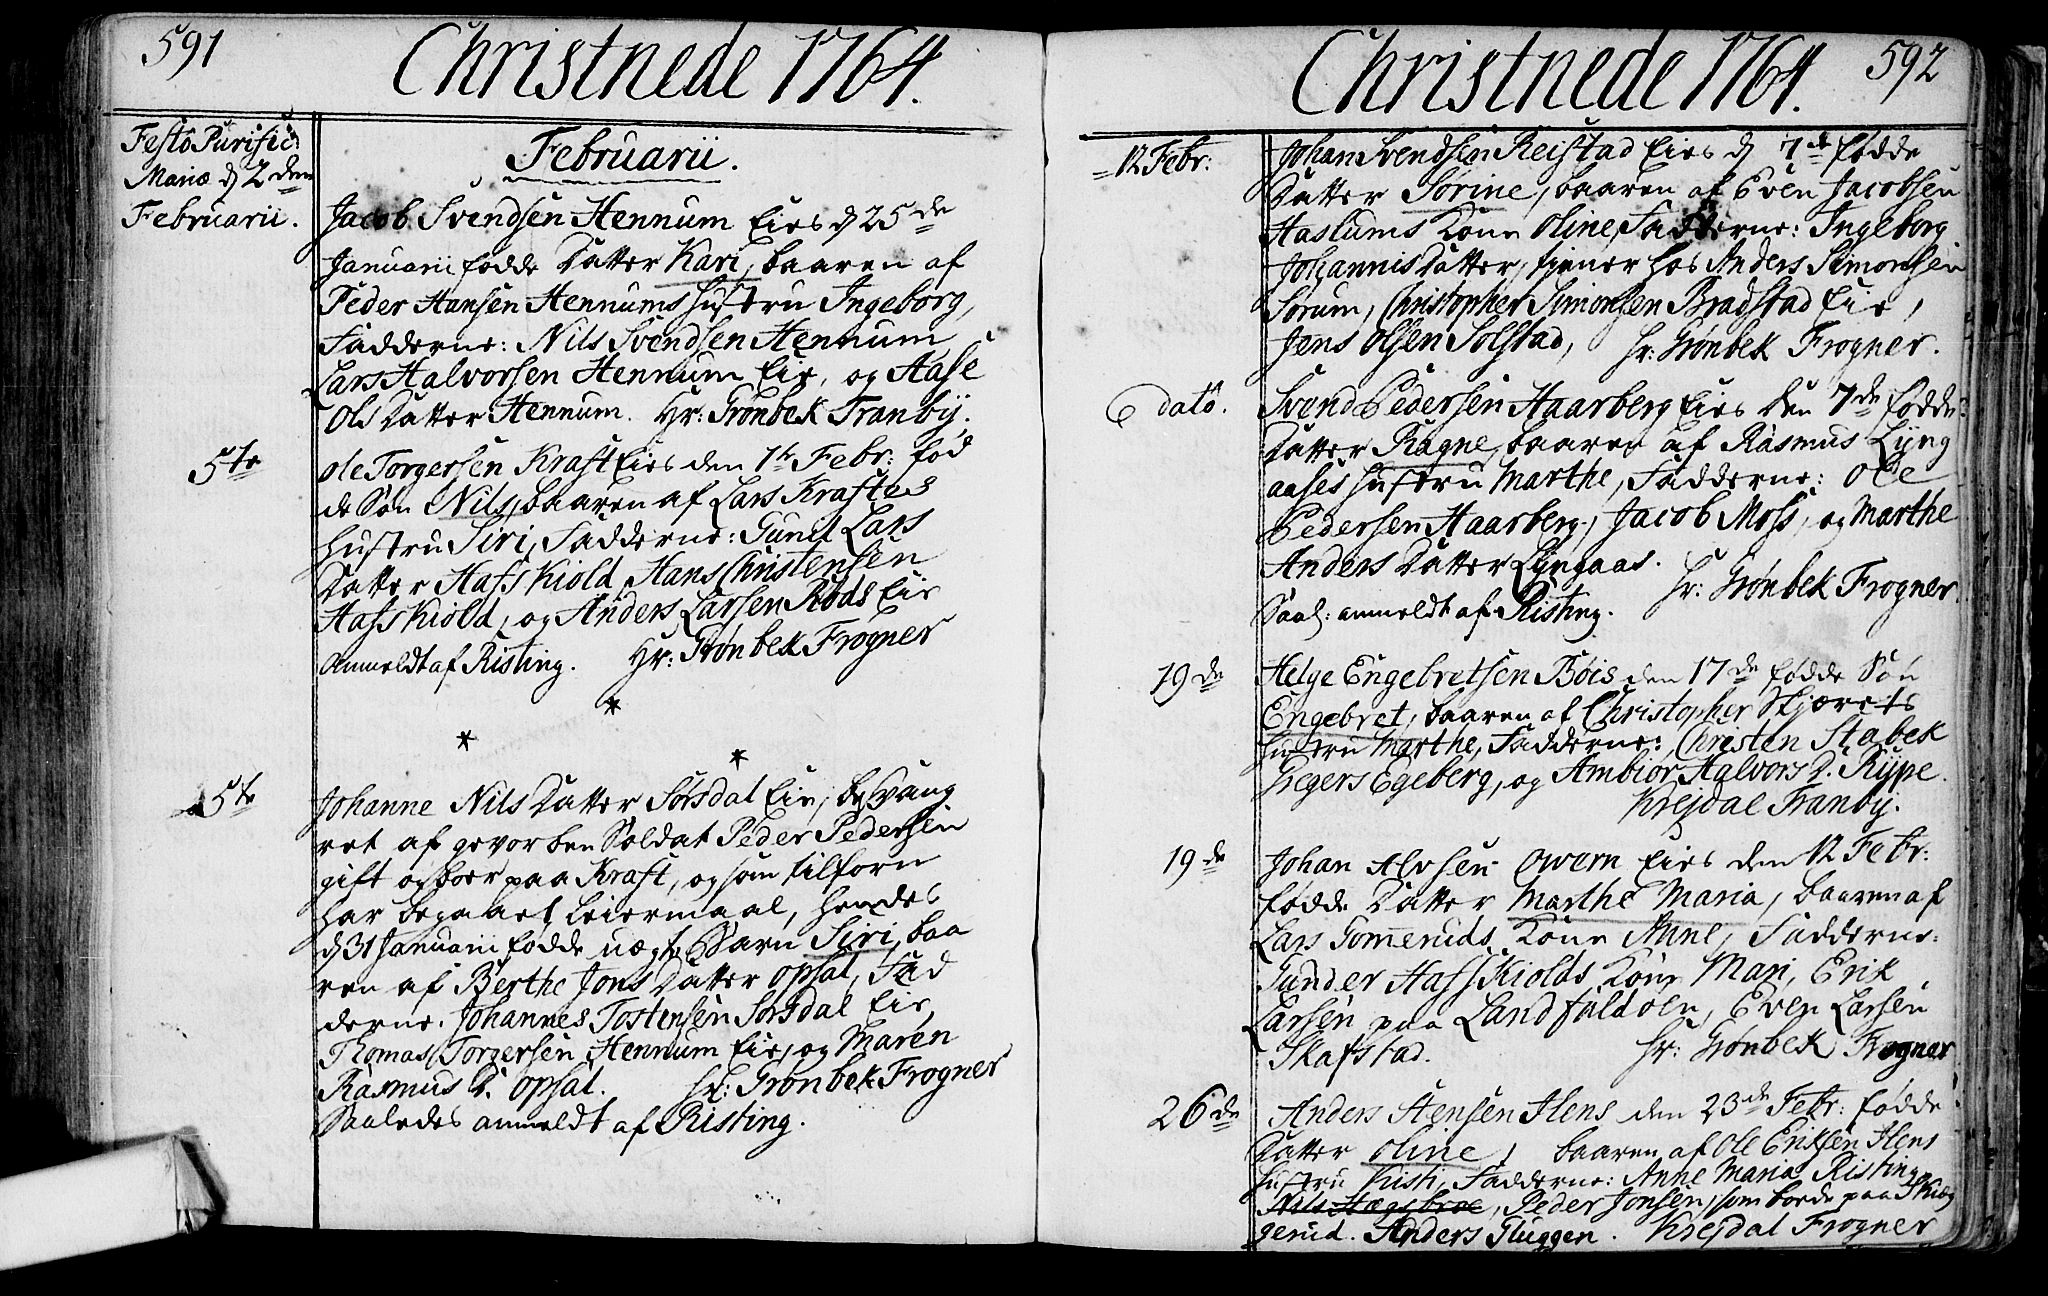 591
Christnede 1764.
Festô Purific:
Mariæ d 2den
Februarii.
Februarii.
Jacob Svendsen Hennum Eies d 25de
Januarii fødde Datter Kari, baaren af
Peder Hansen Hennums Hustru Ingeborg,
Fadderne: Nils Svendsen Hennum
Lars Halvorsen Hennum Eie, og Aase
Ols Datter Hennum. Hr: Grønbek Tranbÿ.
5te
Ole Torgersen Kraft Eies den 1te Febr: fød
de Søn Nils, baaren af Lars Kraftes
Hustru Siri, Fadderne: Gunil Lars
Datter Hafskiold, Hans Christensen
Hafskiold, og Anders Larsen Røds Eie
Anmeldt af Risting. Hr: Grønbek Frogner
*
* *
5te
Johanne Nils Datter Sørsdal Eie, besvang
ret af gevorben Soldat Peder Pedersen
gift og boer paa Kraft, og som tilforn
har begaaet Leiermaal, hendes
d 31 Januarii fødde uægte Barn Siri, baa
ren af Berthe Jons Datter Opsal, Fad
derne. Johannes Tostensen Sørsdal Eie,
Thomas Torgersen Hennum Eie, og Maren
Rasmus D. Opsal. Hr: Grønbek Frogner
Saaledes anmeldt af Risting.
Christnede 1764. 592
12 Febr:
Johan Svendsen Reistad Eies d 7de fødde
Datter Sørine, baaren af Even Jacobsen
Haslums Kone Oline, Fadderne: Ingeborg
Johannis Datter, tiener hos Anders Simonsen
Sørum, Christopher Simonsen Bradstad Eie,
Jens Olsen Solstad, Hr: Grønbek Frogner.
dato.
Svend Pedersen Haarberg Eies den 7de fødde
Datter Ragne, baaren af Rasmus Lyng
aases Hustru Marthe, Fadderne: Ole
Pedersen Haarberg, Jacob Moss, og Marthe
Anders Datter Lyngaas.
Hr: Grønbek Frogner.
Saal: anmeldt af Risting.
19de
Helge Engebretsen Bøis den 17de fødde Søn
Engebret, baaren af Christopher Skjærets
Hustru Marthe, Fadderne: Christen Stabek
Gregers Egeberg, og Ambior Halvors D. Rÿpe.
Krejdal Tranby.
19de
Johan Alvsen Owern Eies den 12 Febr:
fødde Datter Marthe Maria, baaren af
Lars Gomeruds Kone Anne, Fadderne:
Gunder Hafskiolds Kone Mari, Erik
Larsen paa Landfaldøen, Even Larsen
Skafstad. Hr: Grønbek Frogner
26de
Anders Stensen Hens den 23de Febr: fødde
Datter Oline, baaren af Ole Eriksen Hens
Hustru Kisti, Fadderne: Anne Maria Risting
Nils Hægsbroe, Peder Jonsen, som boede paa Skieg
gerud. Anders Gluggen. Krejdal Frogner